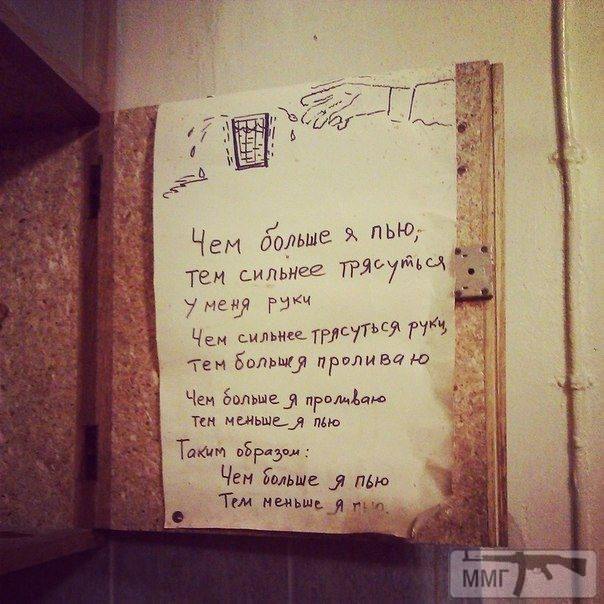 Чем больше я пью,
тем сильнее трясуться
у меня руки
Чем сильнее трясуться руки,
тем больше я проливаю
Чем больше я проливаю
тем меньше я пью
Таким образом:
Чем больше я пью
Тем меньше я пью.
ММГ